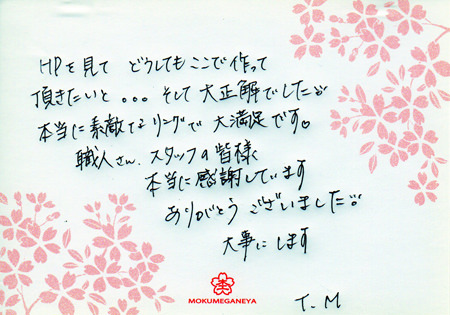 HPを見て どうしてもここで作って
頂きたいと。。。そして大正解でした
本当に素敵なリングで大満足です♡
職人さん、スタッフの皆様
本当に感謝しています
ありがとうございました
大事にします
MOKUMEGANEYA
T.M